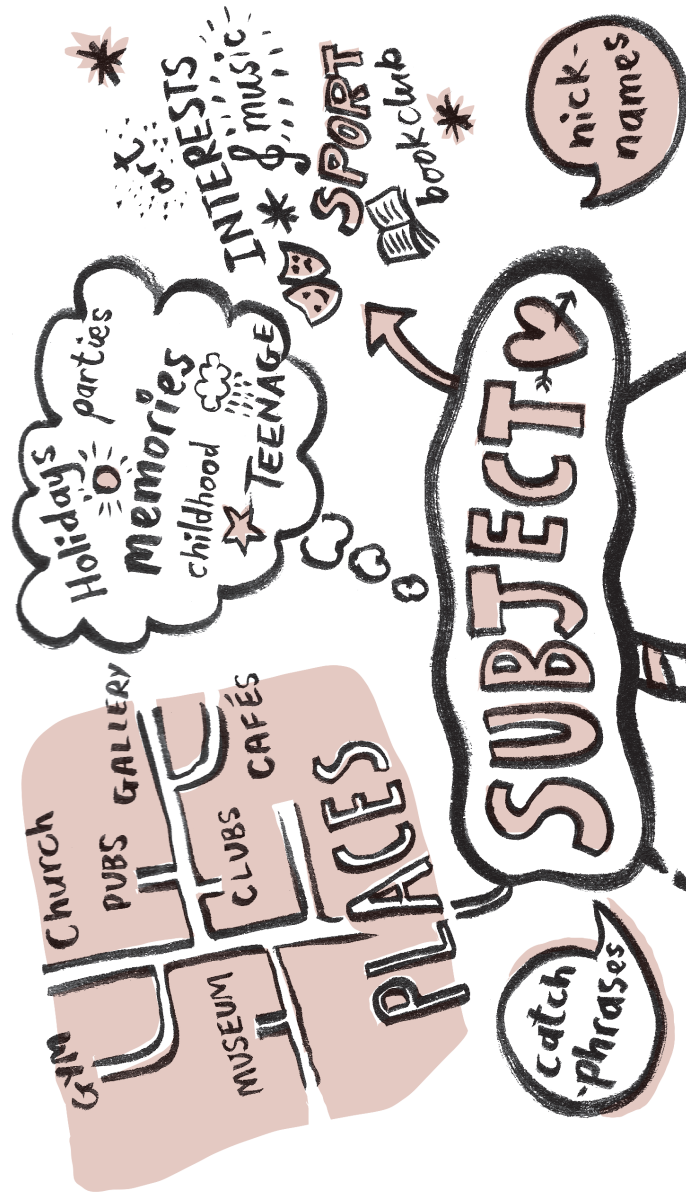 GYM
Church
PUBS
GALLERY
MUSEUM
CLUBS
CAFÉS
PLACES
Holidays
parties
Memories
childhood
TEENAGE
art
INTERESTS
& music
SPORT
bookclub
catch
-phrases
SUBJECT
nick-
names